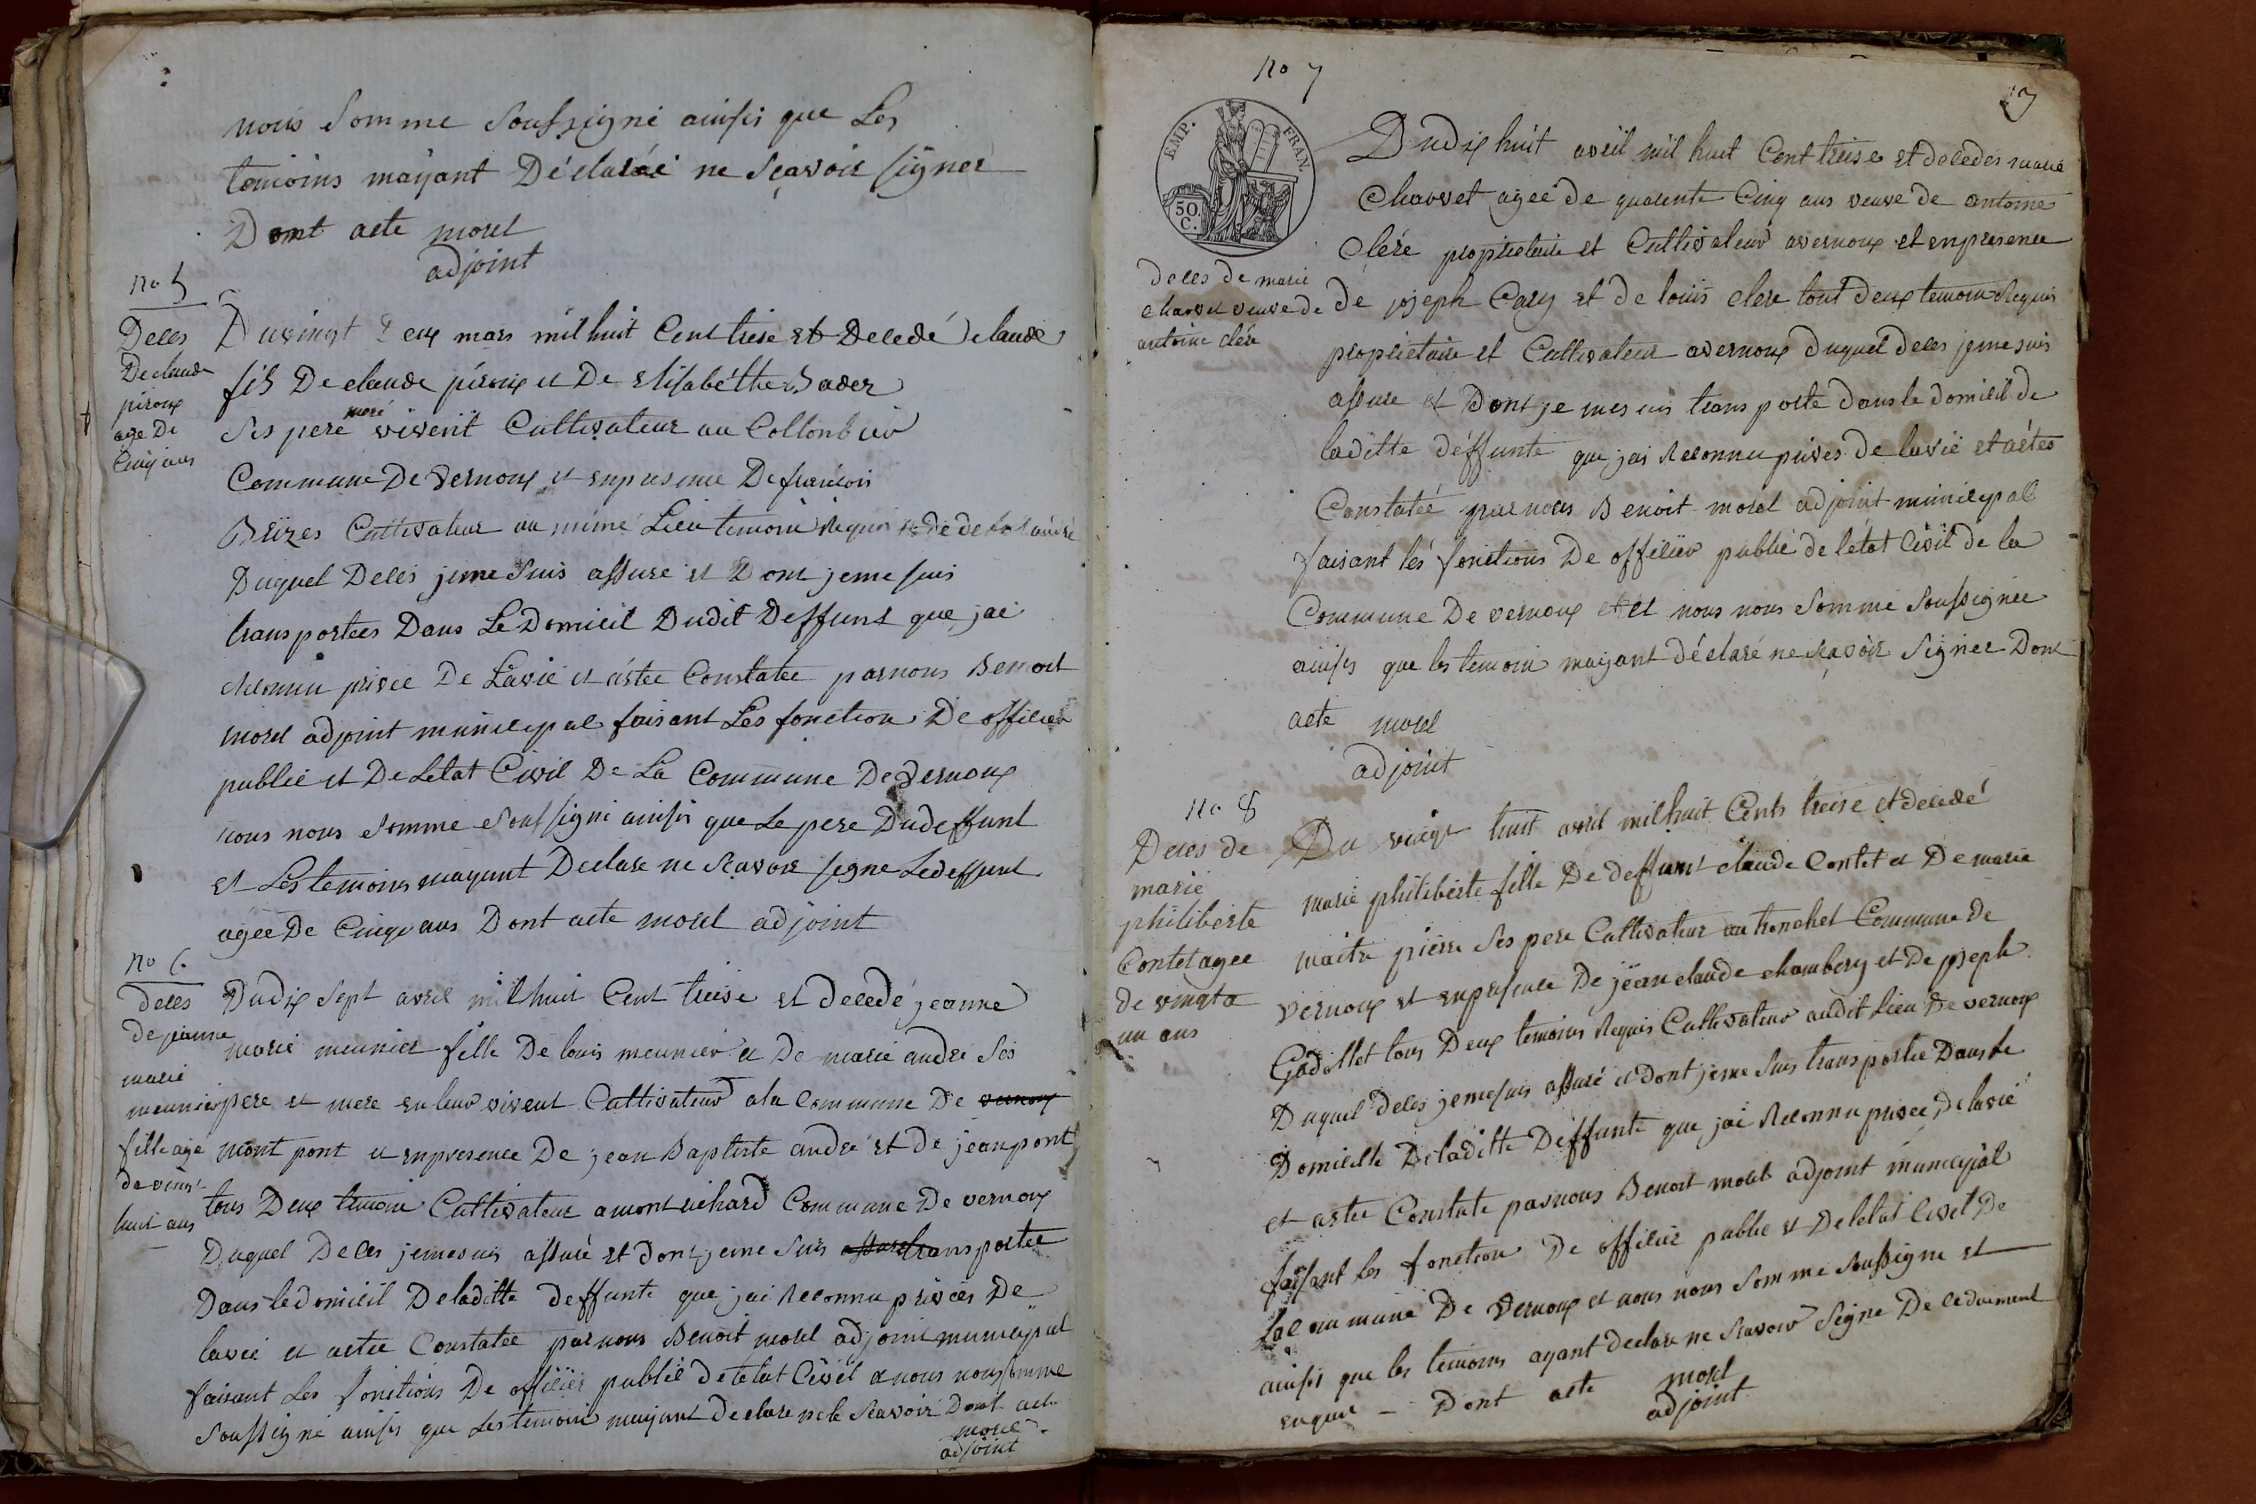 nous Somme Soussigné ainsis que Les
temoins mayant Déclaréé ne Sçavoir signer
Dont acte morel
adjoint
no 5
Deces
De claude
piroux
age De
Cinq ans
Du vingt Deux mars mil huit Cent treise et Decedé Claude
fils De claude piroux et De Elisabéthe Bader
Ses pere meré vivent Cultivateur au Collonbier
Commune De Vernoux et enpresence De francois
Cultivateur au même Lieu temoin Requis
Duquel Deces jeme Suis assure et Dont jeme suis
transportees Dans Le Domicil Dudit Deffunt que jai
Reconnu privee De Lavie et astee Constatee parnous Benoit
morel adjoint municipal faisant Les fonction De officier
publié et De Letat Civil De La Commune De Vernoux
nous nous Somme Soussigné ainsis que Le pere Dudeffunt
et Les temoins mayant Declare ne Scavoir signe Ledeffunt
agée De Cinq ans Dont acte morel adjoint
no 6
deces
De jeanne
marie
meunier
fille agé
de vint
huit ans
Dudix Sept avril mil huit Cent treise et decedé jeanne
marie meunier fille De louis meunier et De marie andre Ses
pere et mere en leur vivent Cultivateur a la Commune De vernoux
mont pont et enpresence De jean Baptiste andre et de jean pont
tous Deux temoin Cultivateur a mont richard Commune De vernoux
Duquel Deces jemesuis assuré et dont jeme Suis assure transportee
Dans ledomicil Deladitte deffunte que jai Reconnu privées De
lavie et actee Constatee parnous Benoit morel adjoint municipal
faisant Les fonctions De officier publié De letat Civil et nous nous somme
Soussigné ainsis que Les temoins mayant Declare ne Scavoir Dont acte
morel
adjoint
no 7
17
EMP. FRAN.
50. C.
deces de marie
charvet veuve de
antoine clére
Dudix huit avril mil huit Cent treise et decedes marie
Charvet agee de quarente Cinq aus veuve de antoine
Clére propriétaire et Cultivateur avernoux et enpresence
de joseph Cary et de louis clere tout deux temoin Requis
proprietaire et Cultivateur avernoux duquel deces jeme suis
assure et Dont je me suis transporte dans le domicil de
laditte déffunte que jai Reconnu privés de lavie et actes
Constatée par nous Benoit morel adjoint municipal
faisant lés fonctions De officier publié de létat Civil de la
Commune De vernoux et nous nous Somme Soussignée
ainsis que les temoin mayant déclaré ne Sçavoir Signer Dont
acte morel
adjoint
no 8
Deces de
marie
philiberte
Contet agee
de vingt
un ans
Du vingt huit avril mil huit Cents treise et decedé
marie philiberte fille De deffunt claude Contet et De marie
maitre piérre Ses pere Cultivateur au tronchet Commune de
vernoux et enpresence De jean claude chambery et De joseph
Gadollet tous Deux temoins Requis Cultivateur audit Lieu De vernoux
Duquel deces jemesuis assuré et dont jeme Suis transportee Dans Le
Domicille Deladitte Deffunte que jai Reconnu privee De lavie
et astee Constate parnous Benoit morel adjoint municipal
faisant les fonction De officier public et De letat Civil De
La Commune De Vernoux et nous nous Somme Soussigne et
ainsis que les temoins ayant declare ne Scavoir Signe De ce dument
enquis - Dont acte morel
adjoint